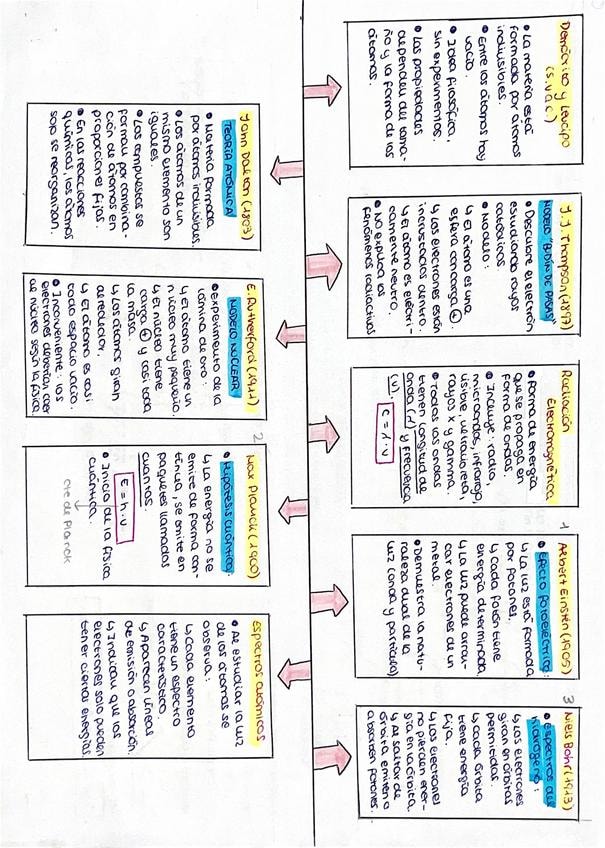 Demócrito y Leucipo
(s. V a.C)
• La materia está
formada por átomos
indivisibles.
• Entre los átomos hay
vacío.
• Idea filosófica,
sin experimentos.
• Las propiedades
dependen del tama-
ño y la forma de los
átomos.
John Dalton (1803)
TEORÍA ATÓMICA
• Materia formada
por átomos indivisibles.
• Los átomos de un
mismo elemento son
iguales.
• Los compuestos se
forman por combina-
ción de átomos en
proporciones fijas.
• En las reacciones
químicas, los átomos
solo se reorganizan.
J.J. Thompson (1897)
MODELO "BUDÍN DE PASAS"
• Descubre el electrón
estudiando rayos
catódicos
• Modelo:
↳ El átomo es una
esfera con carga +.
↳ Los electrones están
incrustados dentro.
↳ El átomo es eléctri-
camente neutro.
• No explica los
fenómenos radiactivos
E. Rutherford (1911)
MODELO NUCLEAR
• Experimento de la
lámina de oro:
↳ El átomo tiene un
núcleo muy pequeño.
↳ El núcleo tiene
carga + y casi toda
la masa.
↳ Los átomos giran
alrededor.
↳ El átomo es casi
todo espacio vacío.
• Inconveniente: los
electrones deberían caer
al núcleo según la física.
Radiación
Electromagnética
• Forma de energía
que se propaga en
forma de ondas.
• Incluye: radio,
microondas, infrarrojo,
visible, ultravioleta,
rayos X y gamma.
• Todas las ondas
tienen longitud de
onda (λ) y frecuencia
(ν).
c = λ · ν
2
Max Planck (1900)
• Hipótesis cuántica:
↳ La energía no se
emite de forma con-
tinua, se emite en
paquetes llamados
cuantos
E = h · ν
• Inicio de la física
cuántica.
cte de Planck
1
Albert Einstein (1905)
• Efecto fotoeléctrico:
↳ La luz está formada
por fotones.
↳ Cada fotón tiene
energía determinada
↳ La luz puede arran-
car electrones de un
metal.
• Demuestra la natu-
raleza dual de la
luz (onda y partícula)
Espectros atómicos
• Al estudiar la luz
de los átomos se
observa:
↳ Cada elemento
tiene un espectro
característico.
↳ Aparecen líneas
de emisión o absorción.
↳ Indican que los
electrones solo pueden
tener ciertas energías.
3
Niels Bohr (1913)
• Espectros del
hidrógeno:
↳ Los electrones
giran en órbitas
permitidas.
↳ Cada órbita
tiene energía
fija.
↳ Los electrones
no pierden ener-
gía en la órbita.
↳ Al saltar de
órbita emiten o
absorben fotones.